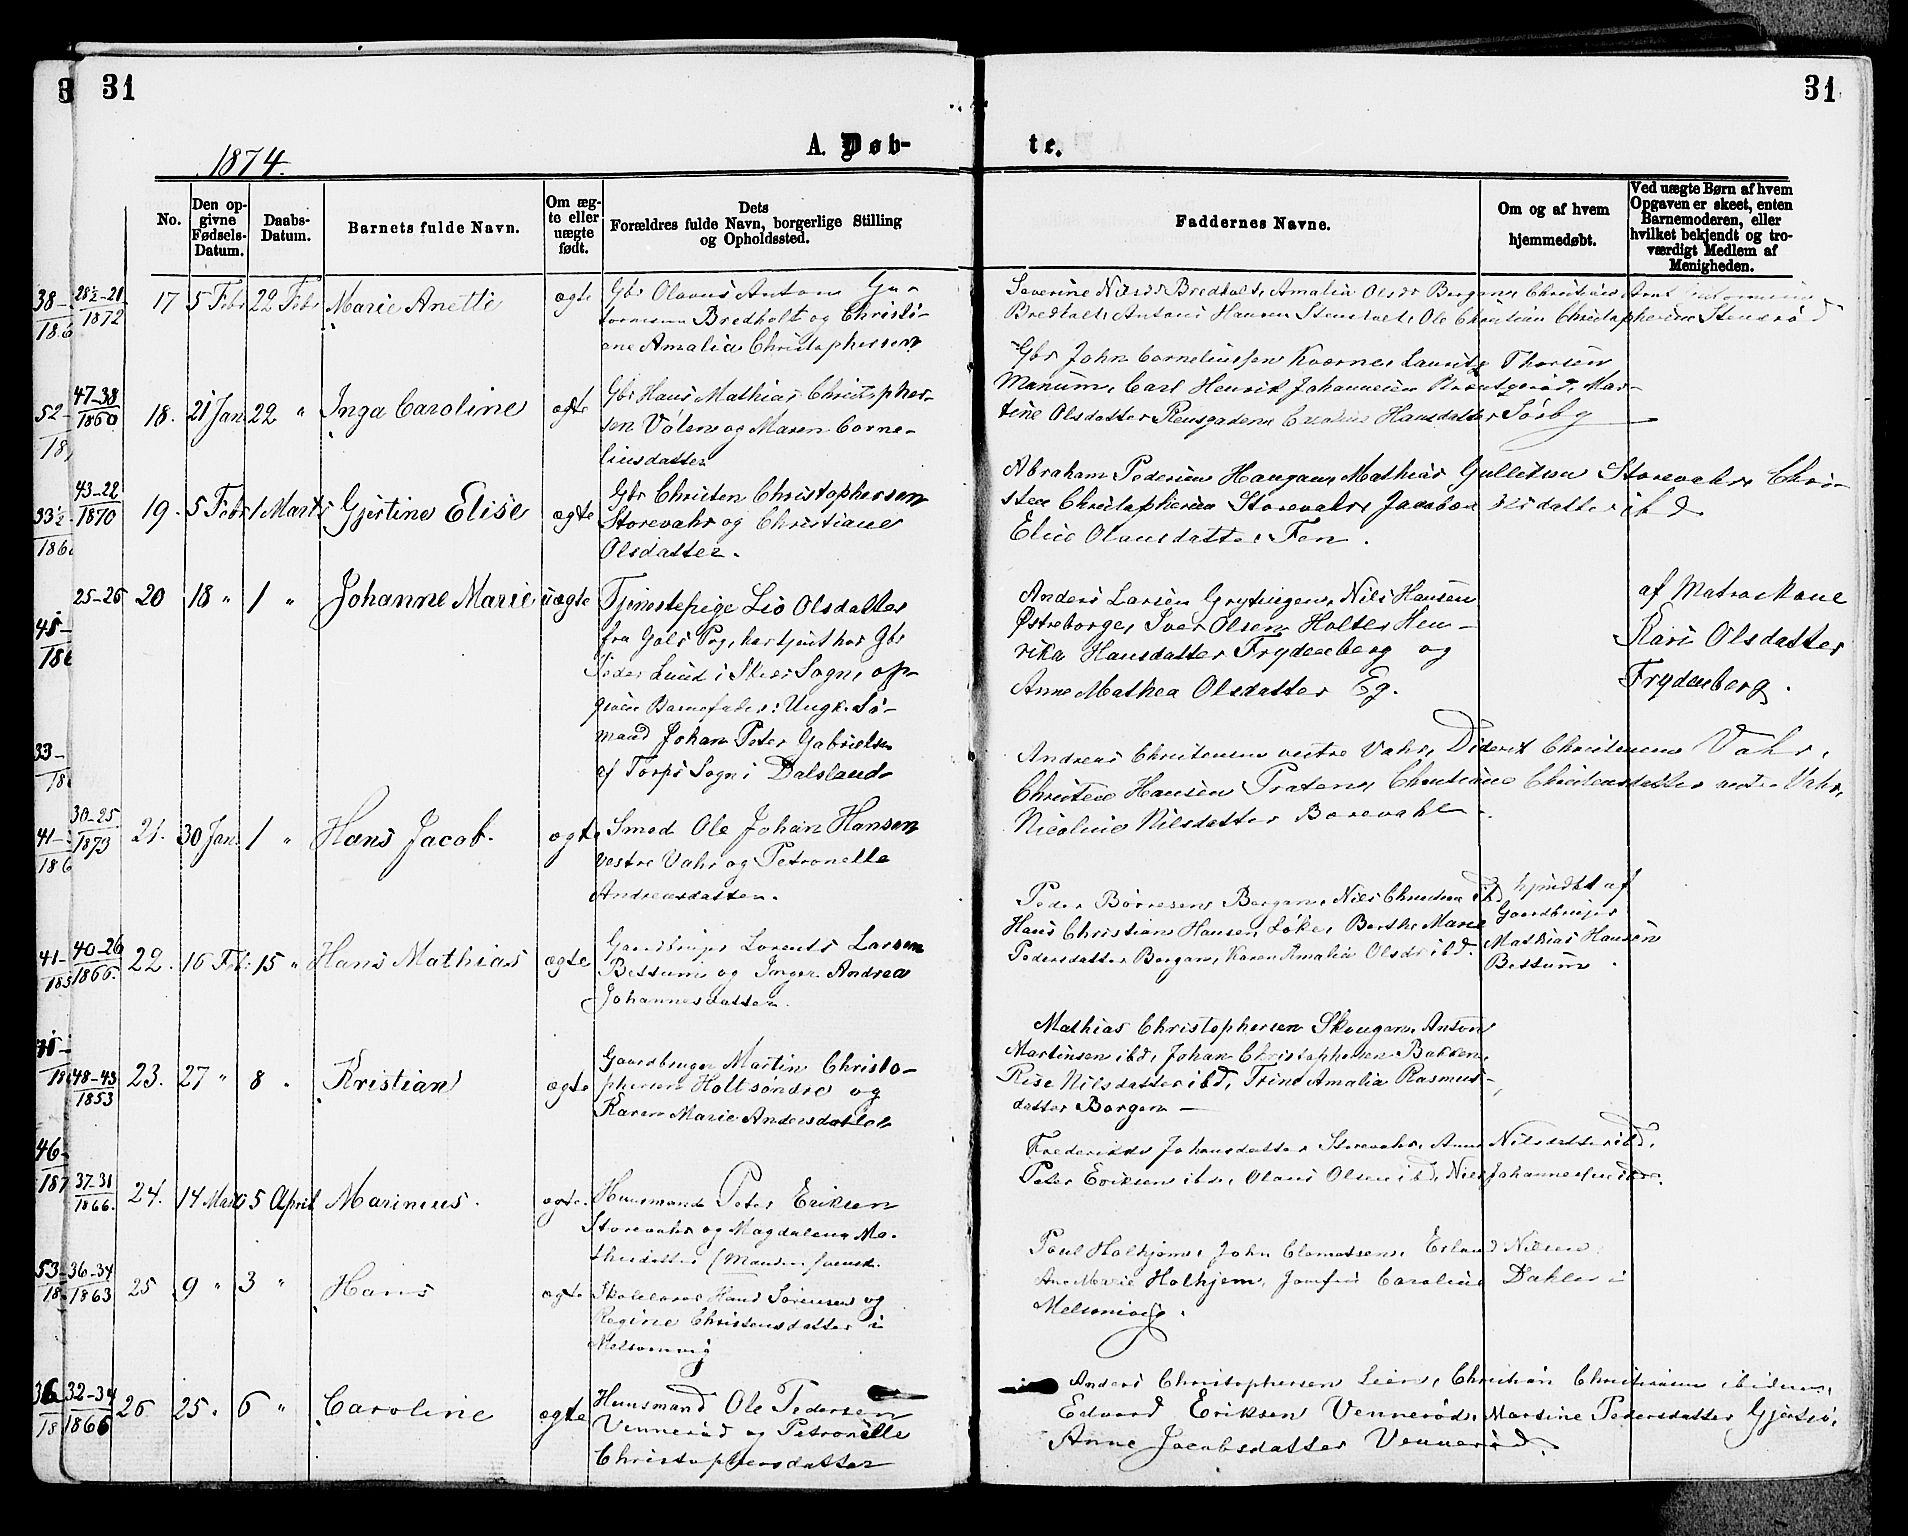 31
31
1874.
A. Døb-
te.
No.
Den op-
givne
Fødsels-
Datum.
Daabs-
Datum.
Barnets fulde Navn.
Om æg-
te eller
uægte
født.
Dets
Forældres fulde Navn, borgerlige Stilling
og Opholdssted.
Faddernes Navne.
Om og af hvem
hjemmedøbt.
Ved uægte Børn af hvem
Opgaven er skeet, enten
Barnemoderen, eller
hvilket bekjendt og tro-
værdigt Medlem af
Menigheden.
28½-21
1872
17 5 Febr 22 Febr Marie Anette ægte
Gbr Olavus Anton
Bredholt og Christi-
ane Amalia Christophersen
Severine Nilsdr Bredholt, Amalia Olsdr Bergan, Christian
Bredholt, Antoni Hansen Stensholt, Ole Christian Christophersen Stensrød
47-38
1860
18. 21 Jan 22 " Inga Caroline ægte
Gbr Hans Mathias Christopher-
sen Vølen og Maren Corne-
liusdatter
Gbr John Corneliussen Kverne, Lauritz Thorsen
Manum, Carl Henrik Johannesen Mar-
tine Olsdatter Hansdatter Sørby
43-28
1870
19. 5 Febr 1 Marts Gjertine Elise ægte
Gbr Christen Christophersen
Storevahr og Christiane
Olsdatter.
Abraham Pedersen Haugan, Mathias Gullikson Storevahr, Chri-
sten Christophersen Storevahr, Jacobea datter ibd
Elise Olausdatter Fen.
25-26
20 18 " 1 " Johanne Marie uægte
Tjenestepige Liv Olsdatter
fra Gols Prg, har tjent hos Gbr
Peder Lund i Skee Sogn, op-
given Barnefader: Ungk. Sø-
mand Johan Peter Gabrielsen
af Torps Sogn i Dalsland.
Anders Larsen Grytingen, Nils Hansen
Østreborge, Iver Olsen Holte, Hen-
rika Hansdatter Frydenberg og
Anne Mathea Olsdatter Eg.
af Madrackone
Kari Olsdatter
Frydenberg.
30-25
1873
21. 30 Jan. 1 " Hans Jacob. ægte
Smed Ole Johan Hansen
vestre Vahr og Petronelle
Andreasdatter.
Andreas Christensen vestre Vahr, Diderik Christensen Vahr,
Christen Hansen Praten, Christine Christensdatter vestre Vahr,
Nicoline Nilsdatter Borevahl.
40-26
1866.
22. 16 Feb: 15 " Hans Mathias ægte
Gaardbruger Lorents Larsen
Bettum og Inger Andrea
Johannesdatter.
Peder Børresen Bergan, Nils Christensen ibd
Hans Christian Hansen Løke, Berthe Marie
Pedersdatter Bergan, Karen Amalia Olsdr ibd.
hjmdbt af
Gaardbruger
Mathias Hansen
Bettum.
48-43
1853
23. 27 " 8 " Kristian ægte
Gaardbruger Martin Christo-
phersen Holt søndre og
Karen Marie Andersdatter
Mathias Christophersen Skougen, Anton
Martinsen ibd, Johan Christophersen Bakken,
Rise Nilsdatter ibd, Trine Amalia Rasmus-
datter Borgen —
37-31
1866.
24. 14 Marts 5 April Marinius. ægte.
Huusmand Peter Eriksen
Storevahr og Magdalena Ma-
thisdatter (Manden svensk.
Frederikke Johansdatter Storevahr, Anne Nilsdatter ibd,
Peter Eriksen ibd, Olaus Olsen ibd, Nils Johannessen ibd.
36-34
1863
25 9 " 3 " Hans ægte
Skolelærer Hans Sørensen og
Regine Christensdatter i
Melsomvig
Poul Holhjem, John Clemetsen, Erland Nilsen,
Ane Marie Holhjem, Jomfru Caroline Dahler i
Melsomvig.
32-34
1866
26 25 " 6 " Caroline ægte
Huusmand Ole Pedersen
Vennerød og Petronelle
Christophersdatter
Anders Christophersen Lien, Christian Christiansen ibidem,
Edvard Eriksen Vennerød, Martine Pedersdatter Gjertsø,
Anne Jacobsdatter Vennerød.